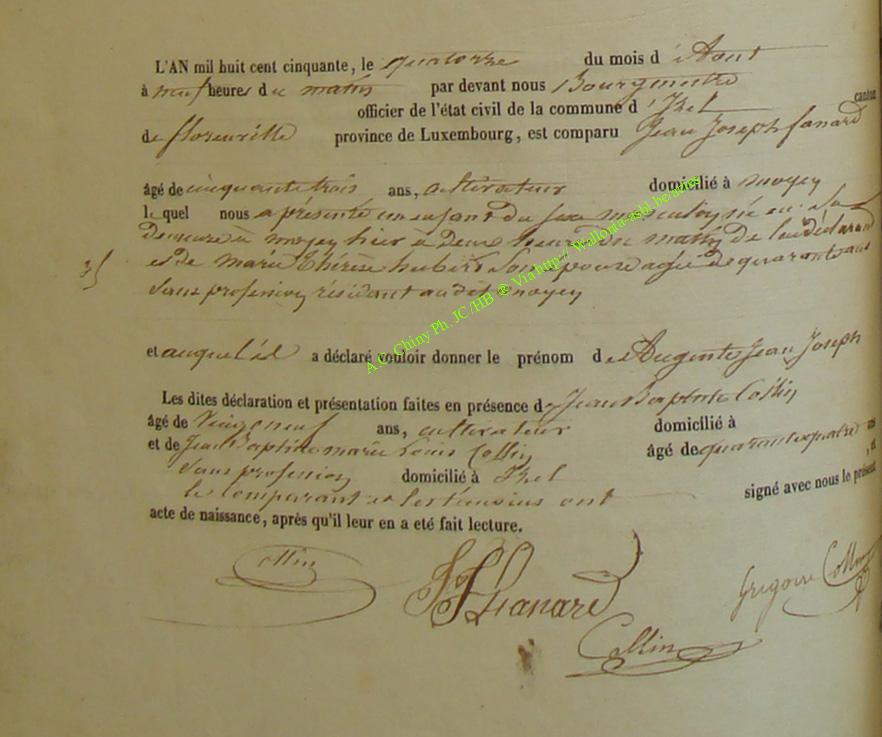 L'AN mil huit cent cinquante, le quatorze du mois d'Aout
à neuf heures du matin par devant nous Bourgmestre
officier de l'état civil de la commune d'Izel canton
de florenville province de Luxembourg, est comparu Jean Joseph
âgé de cinquante trois ans, cultivateur domicilié à moyen
lequel nous a présenté un enfant du sexe masculin, né en sa
demeure à moyen hier à Deux heures du matin, de lui déclarant
et de marie Thérèse hubert son épouse agée de quarante ans
sans profession résidant audit moyen
35
et auquel il a déclaré vouloir donner le prénom de Auguste Jean Joseph
Les dites déclaration et présentation faites en présence de Jean Baptiste Collin
âgé de Vingt neuf ans, cultivateur domicilié à
et de Jean Baptiste marie Louis Collin âgé de quarante quatre ans
sans profession domicilié à Izel , et
les comparant et les témoins ont signé avec nous le présent
acte de naissance, après qu'il leur en a eté fait lecture.
Collin
JJLianard
Grégoire Collin
Collin
A.C. Chiny Ph. JC/HB @ Via http://Wallonia-asbl.be